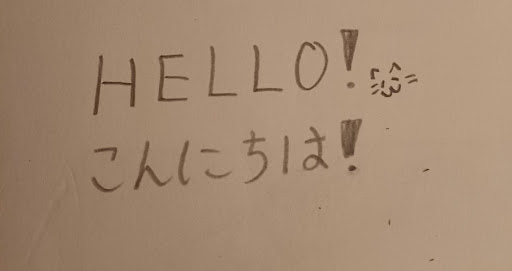 HELLO!
こんにちは!